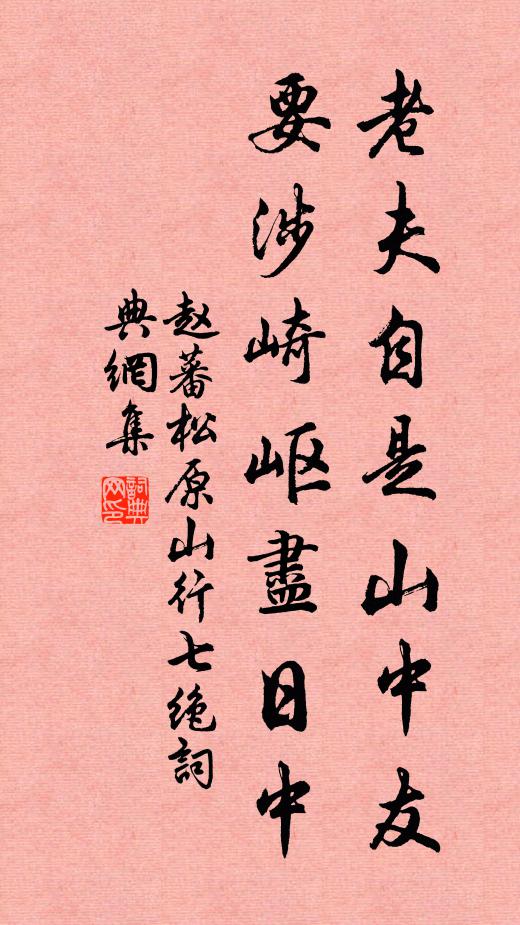 老夫自是山中友
要涉崎岖盡日中
赵蕃松原山行七绝詞
典網集
詞典网印